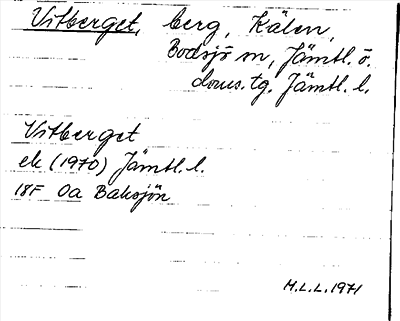 Vitberget, berg, Kälen,
Bodsjö sn, Jämtl. ö.
doms.tg. Jämtl. l.
Vitberget
ek (1970) Jämtl. l.
18F 0a Baksjön
M.L.L. 1971